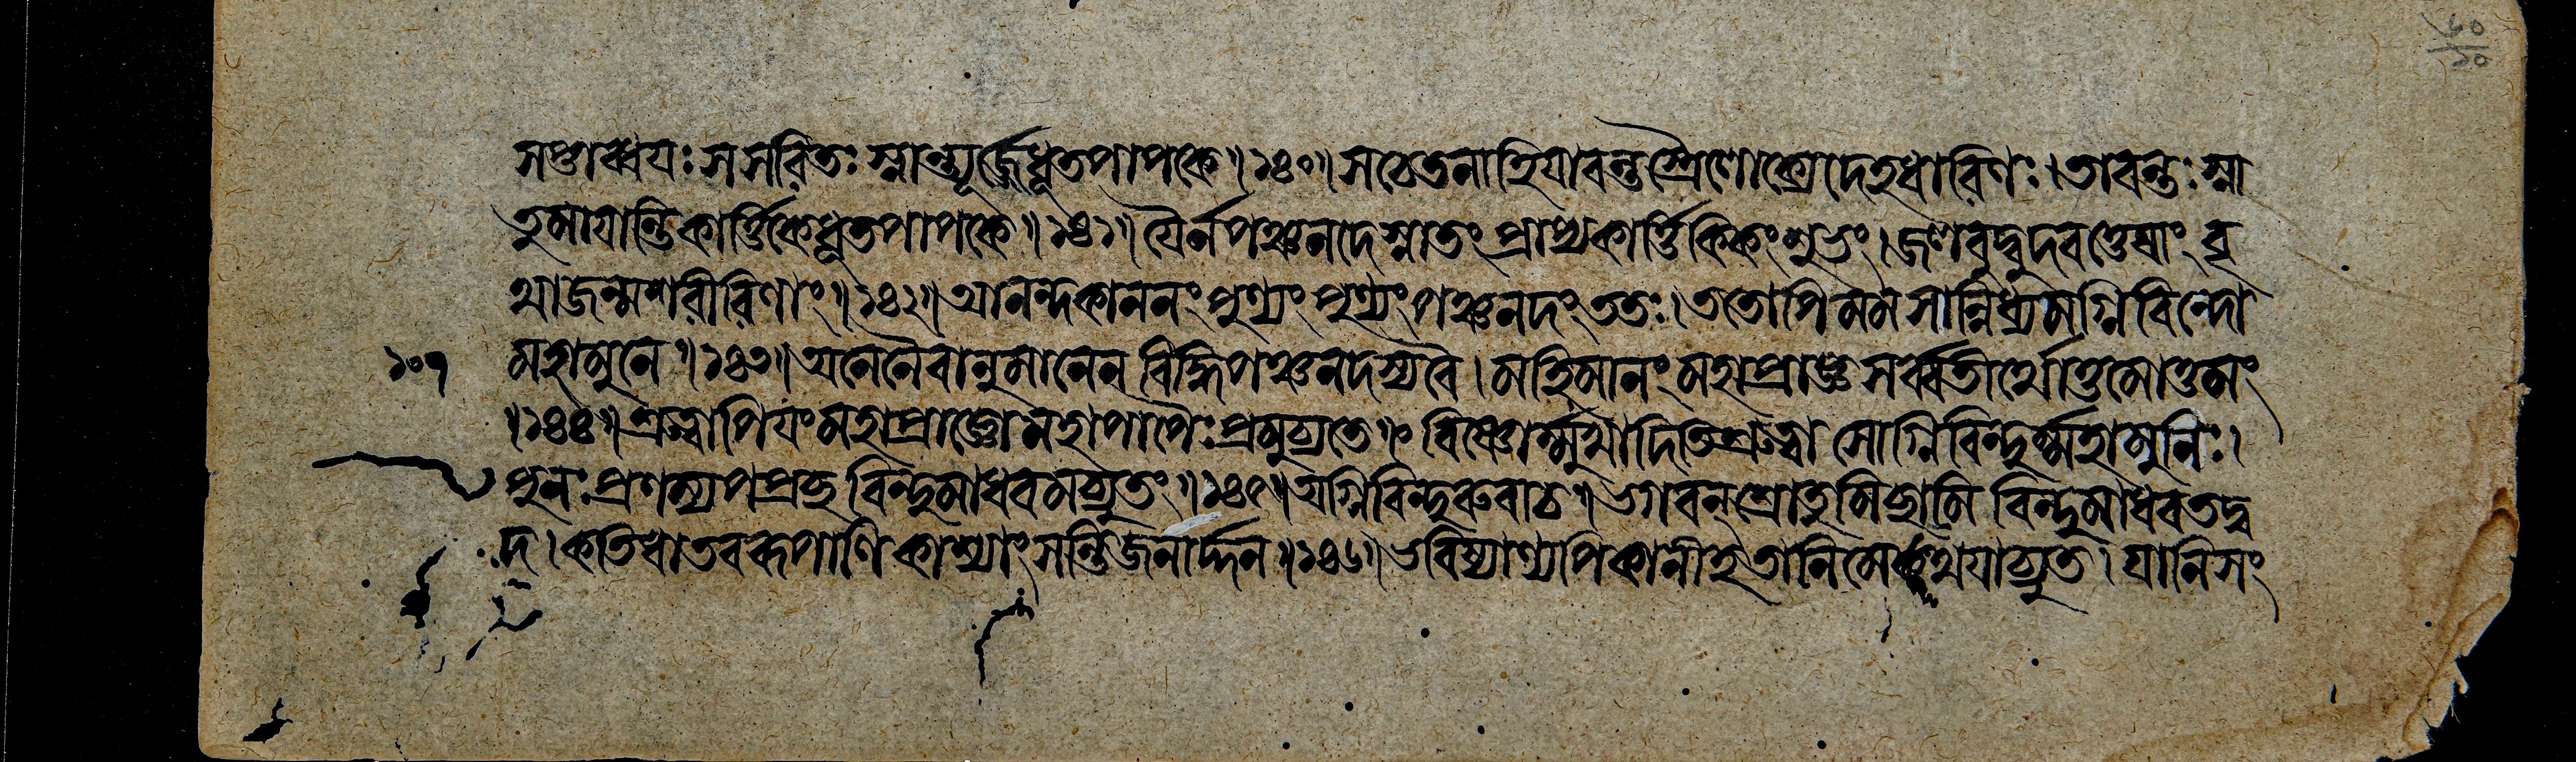 ৬০
১০
সপ্তাব্ধয়ঃ সসরিতঃ স্নান্ত্যূর্জ্জে ধূতপাপকে ॥ ১৪০ ॥ সচেতনাহি যাবন্তস্ত্রৈলোক্যে দেহধারিণঃ । তাবন্তঃ স্না
তুমায়ান্তি কার্ত্তিকে ধূতপাপকে ॥ ১৪১ ॥ যৈর্ন পঞ্চনদে স্নাতং প্রাপ্য কার্ত্তিকিকং শুভং । জলবুদ্বুদবত্তেষাং বৃ
থা জন্ম শরীরিণাং ॥ ১৪২ ॥ আনন্দকাননং পুণ্যং পুণ্যং পঞ্চনদং ততঃ । ততোপি মম সান্নিধ্যমগ্নিবিন্দো
১০৭ মহামুনে ॥ ১৪৩ ॥ অনেনৈবানুমানেন বিদ্ধি পঞ্চনদস্য বৈ । মহিমানং মহাপ্রাজ্ঞ সর্ব্বতীর্থোত্তমোত্তমং
॥ ১৪৪ ॥ শ্রুত্বাপি যং মহাপ্রাজ্ঞো মহাপাপৈঃ প্রমুচ্যতে ॥ ০ বিষ্ণোর্ম্মুখাদিতি শ্রুত্বা সোগ্নিবিন্দুর্ম্মহামুনিঃ ।
পুনঃ প্রণম্য পপ্রচ্ছ বিন্দুমাধবমচ্যুতং ॥ ১৪৫ ॥ অগ্নিবিন্দুরুবাচ ॥ ভগবন্ শ্রোতুমিচ্ছামি বিন্দুমাধব তদ্ব
দ । কতিধা তব রূপাণি কাশ্যাং সন্তি জনার্দ্দন ॥ ১৪৬ ॥ ভবিষ্যাণ্যপি কানীহ তানি মে কথয়াচ্যুত । যানি সং